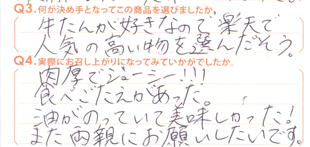 Q3.何が決め手となってこの商品を選びましたか。
牛たんが好きなので楽天で
人気の高い物を選んだそう。
Q4.実際にお召し上がりになってみていかがでしたか。
肉厚でジューシー!!!
食べごたえがあった。
油がのっていて美味しかった!
また両親にお願いしたいです。